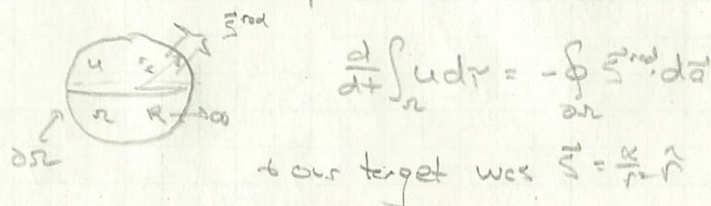 S⃗ʳᵃᵈ
u
d/dt ∫_Ω u dτ = -∮_∂Ω S⃗ʳᵃᵈ · da⃗
Ω R→∞
∂Ω
our target was S⃗ = α/r² r̂